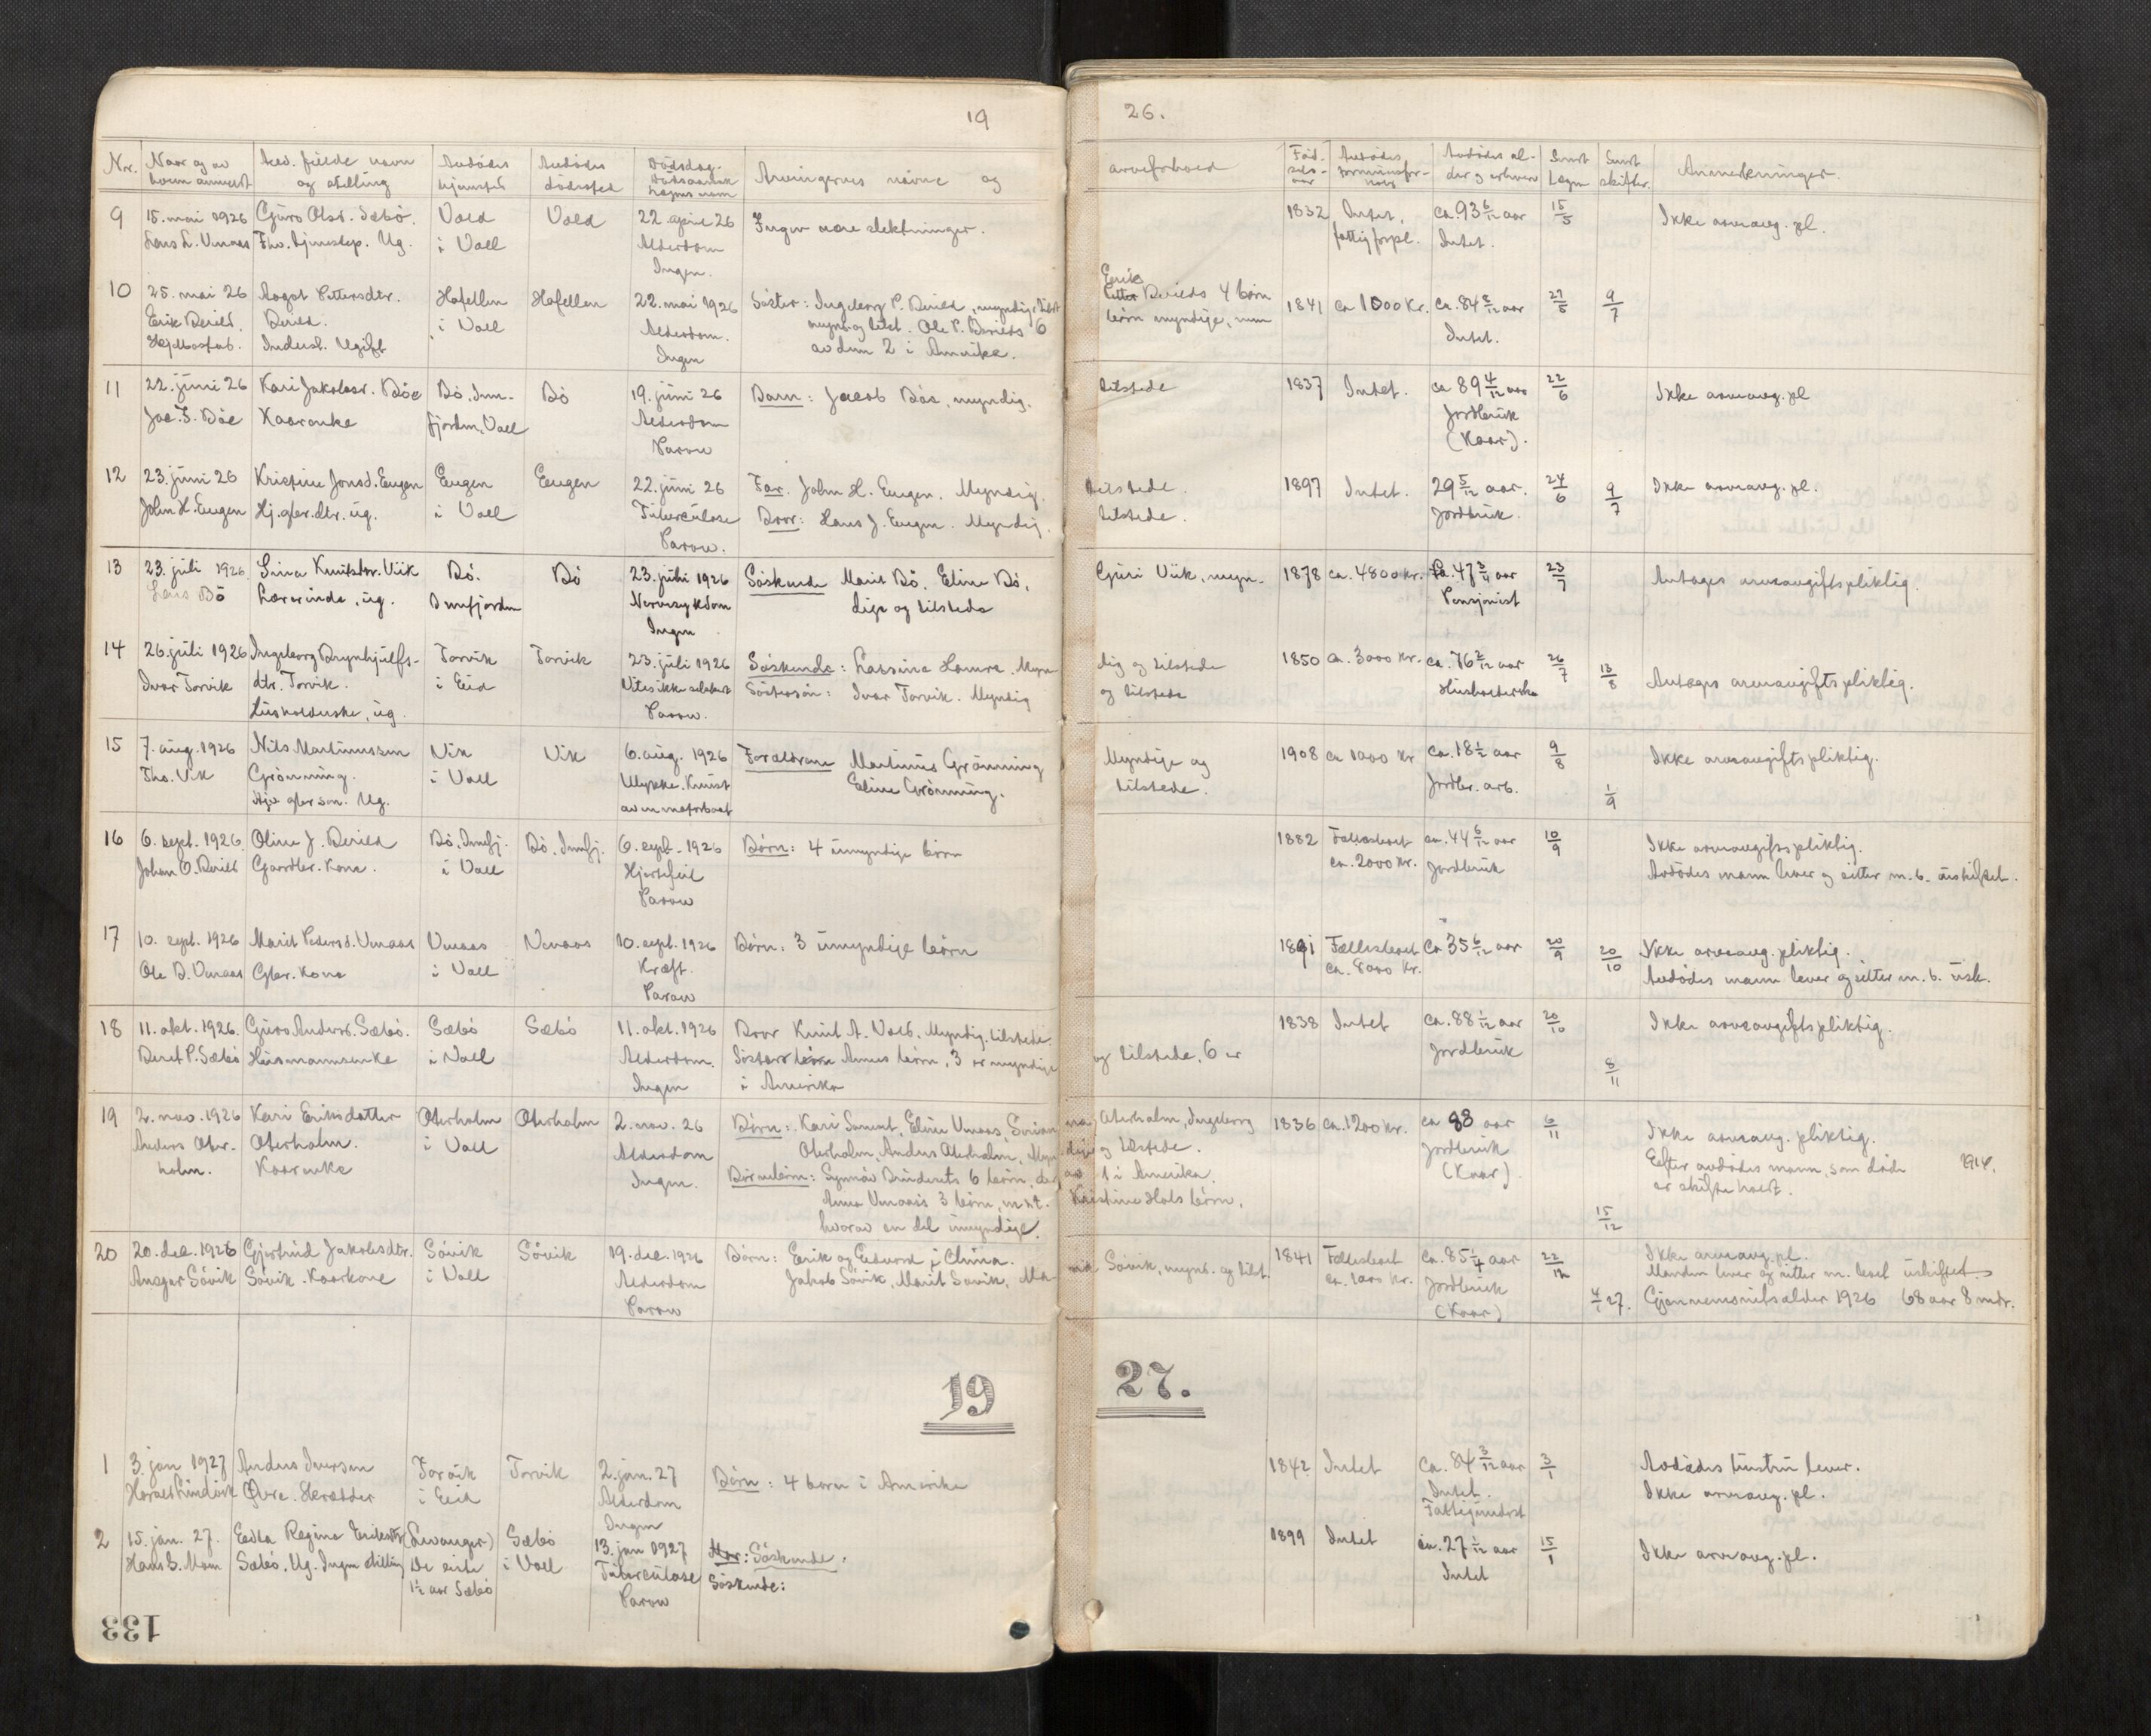 19
26.
Nr.
Naar og av hvem anmeldt
Avd. fulde navn og stilling
Avdødes hjemsted
Avdødes dødssted
Dødsdag. Dødsaarsak
Arvingernes navne og
arveforhold
Fødselsaar
Avdødes formuesforhold
Avdødes alder og erhverv
Sendt Lægen
Sendt skifter.
Anmerkninger.
9
15. mai 1926
Lars L. Venaas
Guro Olsd. Sæbø.
Ug.
Vold
i Voll
Vold
22. april 26
Alderdom
Ingen.
Ingen nære slektninger.
1832
Intet,
fattigforpl.
ca. 93 6/12 aar
Intet.
15/5
Ikke arveavg. pl.
10
25. mai 26
Erik Berild.
Magot Pettersdtr.
Berild.
Inderst. Ugift
Hofellen
i Voll
Hofellen
22. mai 1926
Alderdom.
Ingen
Søster: Ingeborg P. Berild, myndig, tilst.
mynd. og tilst. Ole P. Berilds 6
av dem 2 i Amerika.
Erik
Berilds 4 børn
børn myndige,
1841
ca 1000 Kr.
ca. 84 2/12 aar
Intet.
27/5
9/7
11
22. juni 26
Jac. J. Bøe
Kari Jakobsd. Bøe
Kaarenke
Bø, Inn-
fjorden, Voll
Bø
19. juni 26
Alderdom
Parow
Barn: Jacob Bøe, myndig.
tilstede
1837
Intet.
ca 89 4/12 aar
Jordbruk
(Kaar).
22/6
Ikke arveavg. pl
12
23. juni 26
John H. Eugen
Kristine Jonsd. Eugen
Hj. gbr. dtr. ug.
Eugen
i Voll
Eugen
22. juni 26
Tuberculose
Parow.
Far. John H. Eugen. Myndig.
Bror: Hans J. Eugen. Myndig.
tilstede.
tilstede.
1897
Intet.
29 5/12 aar.
Jordbruk.
24/6
9/7
Ikke arveavg. pl.
13
23. juli 1926
Lars Bø
Knutsdtr. Viik
Lærerinde, ug.
Bø.
Innfjorden
Bø
23. juli 1926
Nervesykdom
Ingen
Søskende Marit Bø, Eline Bø,
dige og tilstede
Guri Viik, myn-
1878
ca. 4800 Kr.
ca. 47 aar
Pensjonist
23/7
Antages arveavgiftspliktig.
14
26. juli 1926
Ivar Torvik
Ingeborg Brynhjulfs-
dtr. Torvik.
Husholderske, ug.
Torvik
i Eid
Torvik
23. juli 1926
Vites ikke
Parow.
Søskende: Lassine Hamre. Myn-
Søstersøn: Ivar Torvik. Myndig
dig og tilstede
og tilstede
1850
ca. 3000 Kr.
ca. 76 2/12 aar
Husholderske
26/7
13/8
Antages arveavgiftspliktig.
15
7. aug. 1926
Tho. Vik
Nils Martinussen
Grønning.
gbr. søn. Ug.
Vik
i Voll
Vik
6. aug. 1926
Ulykke. Knust
av en motorbaat
Forældrene Martinus Grønning
Eline Grønning.
Myndige og
tilstede.
1908
ca 1000 Kr
ca. 18 1/2 aar
Jordbr. arb.
9/8
1/9
Ikke arveavgiftspliktig.
16
6. sept. 1926
Johan O. Berild
Oline J. Berild
Gaardbr. Kone.
Bø, Innfj.
i Voll
Bø, Innfj.
6. sept. 1926
Hjertefeil
Parow
Børn: 4 umyndige børn
1882
Fællesboet
ca. 2000 Kr.
ca. 44 6/12 aar
Jordbruk
10/9
Ikke arveavgiftspliktig.
Avdødes mann lever og sitter m. b. uskiftet.
17
10. sept. 1926
Ole B. Venaas
Marit Pedersd. Venaas
Gbr. Kone
Venaas
i Voll
Venaas
10. sept. 1926
Kræft.
Parow
Børn: 3 umyndige børn
1891
Fællesboet
ca. 8000 Kr.
ca 35 6/12 aar
20/9
20/10
Ikke arveavg. pliktig.
Avdødes mann lever og sitter m. b. usk.
18
11. okt. 1926.
Beret P. Sæbø
Guro Andersd. Sæbø.
Husmannsenke
Sæbø
i Voll
Sæbø
11. okt. 1926
Alderdom.
Ingen
Bror Knut A. Vold, Myndig, tilstede.
Søster børn Annes børn, 3 er myndige
i Amerika
og tilstede, 6 er
1838
Intet
ca. 88 1/12 aar
Jordbruk
20/10
8/11
Ikke arveavgiftspliktig.
19
2. nov. 1926
Anders Oter-
holm.
Kari Eriksdatter
Oterholm.
Kaarenke
Oterholm
i Voll
Oterholm
2. nov. 26
Alderdom
Ingen.
Børn: Kari Eline Venaas,
Oterholm, Anders Oterholm, Myn
Børnebørn: Synnøv 6 børn, der
Anna Venaas's 3 børn, samt.
hvorav en del umyndige.
Oterholm, Ingeborg
dige og tilstede.
av 1 i Amerika.
Kristine Hols børn,
1836
ca. 1200 Kr.
ca 88 aar
Jordbruk
(Kaar)
6/11
15/12
Ikke arveavg. pliktig.
Efter avdødes mann, som døde 1914.
er skifte holdt.
20
20. dec. 1926
Ansgar Søvik
Gjertrud Jakobsdtr.
Søvik. Kaarkone
Søvik
i Voll
Søvik
19. dec. 1926
Alderdom
Parow
Børn: Erik og Edvard i China.
Jakob Søvik, Marit Søvik, Ma-
Søvik, mynd. og tilst.
1841
Fællesboet
ca. 1000 Kr.
ca. 85 1/4 aar
Jordbruk
(Kaar)
22/12
4/1 27.
Ikke arveavg. pl.
Manden lever og sitter m. boet uskiftet.
Gjennemsnitsalder 1926 68 aar 8 mdr.
19
27.
1
3. jan 1927
Anders Iversen
Øvre.
Torvik
i Eid
Torvik
2. jan. 27
Alderdom
Ingen
Børn: 4 børn i Amerika
1842
Intet
ca. 84 3/12 aar
Intet.
3/1
Avdødes hustru lever.
Ikke arveavg. pl.
2
15. jan. 27.
Hans B. Moen
Edla Regine
Sæbø. Ug. Ingen stilling
(Levanger)
De siste
1 1/2 aar Sæbø
Sæbø
i Voll
13. jan 1927
Tuberculose
Parow
Mor: Søskende.
Søskende:
1899
Intet
ca. 27 1/12 aar
Intet
15/1
Ikke arveavg. pl.
133